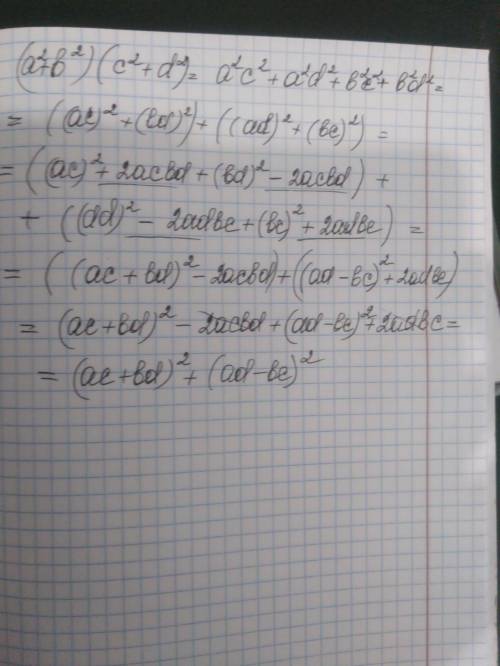 (a²+b²)(c²+d²)= a²c²+a²d²+b²c²+b²d²=
= ((ac)²+(bd)²)+((ad)²+(bc)²)=
= ((ac)²+2acbd+(bd)²-2acbd)+
+ ((ad)²-2adbc+(bc)²+2adbc)=
= ((ac+bd)²-2acbd)+((ad-bc)²+2adbc)
= (ac+bd)²-2acbd+(ad-bc)²+2adbc=
= (ac+bd)²+(ad-bc)²